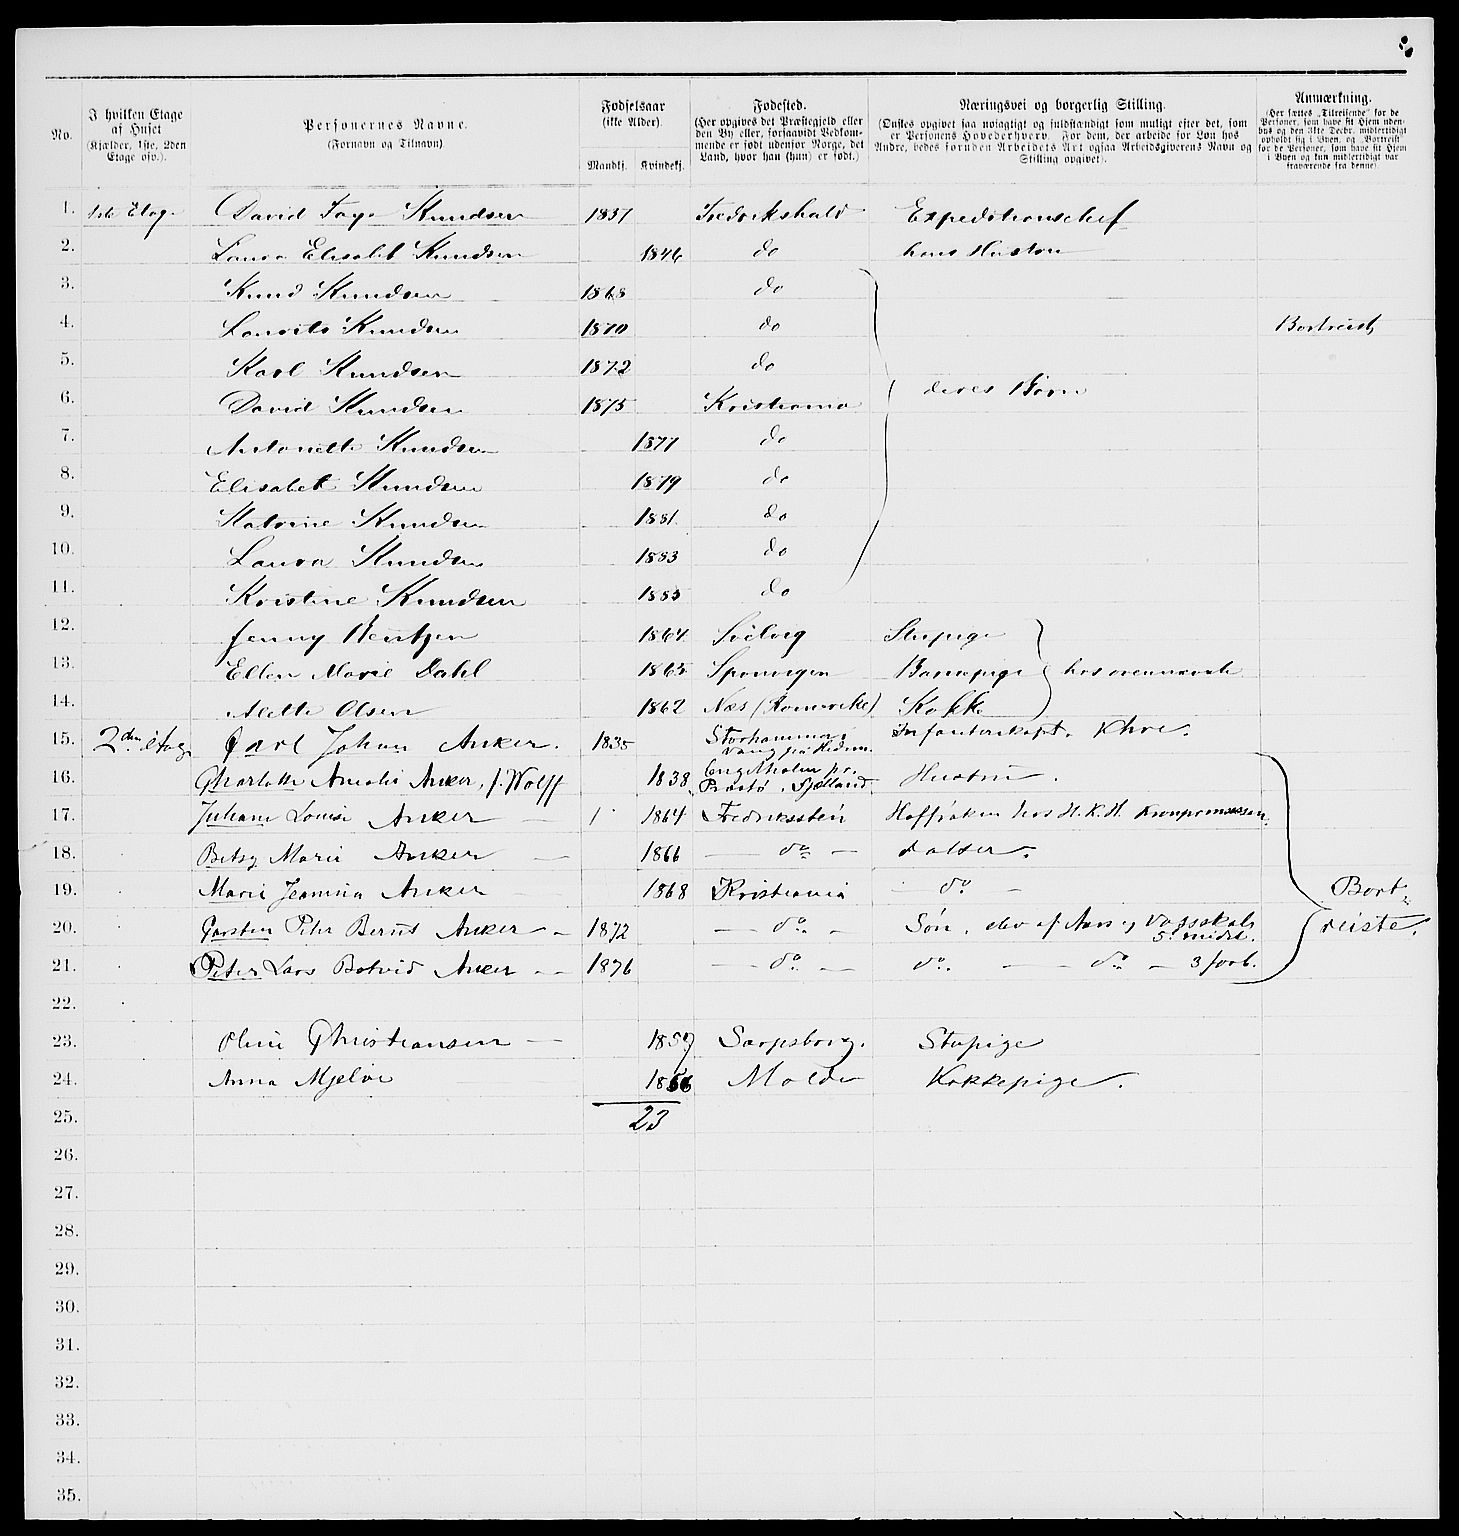 No.
I hvilken Etage af Huset (Kjælder, 1ste, 2den Etage osv.).
Personernes Navne. (Fornavn og Tilnavn).
Fødselsaar (ikke Alder). Mandkj. Kvindekj.
Fødested. (Her opgives det Præstegjeld eller den By eller, forsaavidt Vedkommende er født udenfor Norge, det Land, hvor han (hun) er født.)
Næringsvei og borgerlig Stilling. (Ønskes opgivet saa nøiagtigt og fuldstændigt som muligt efter det, som er Personens Hovederhverv. For dem, der arbeide for Løn hos Andre, bedes foruden Arbeidets Art ogsaa Arbeidsgiverens Navn og Stilling opgivet).
Anmærkning. (Her sættes „Tilreisende“ for de Personer, som have sit Hjem udenbys og den 31te Decbr. midlertidigt opholdt sig i Byen, og „Bortreist“ for de Personer, som have sit Hjem i Byen og kun midlertidigt var fraværende fra denne).
1. 1ste Etage David Faye Knudsen 1837 Fredrikshald Expeditionschef
2. Laura Elisabet Knudsen 1846 do hans Hustru
3. Knud Knudsen 1868 do
4. Laurits Knudsen 1870 do Bortreist
5. Karl Knudsen 1872 do
6. David Knudsen 1875 Kristiania deres Børn
7. Antonette Knudsen 1877 do
8. Elisabet Knudsen 1879 do
9. Katrine Knudsen 1881 do
10. Laura Knudsen 1883 do
11. Kristine Knudsen 1885 do
12. Jenny Bentzen 1864 Svelvig Stupige
13. Ellen Marie Dahl 1865 Barnepige hos ovennævnte
14. Alette Olsen 1862 Næs (Romerike) Kokke
15. 2den Etage Carl Johan Anker. 1835 Storhammer Vang på Hedm. Infanterikapt. Khre.
16. Charlotte Amalie Anker, f. Wolff 1838 Engelholm pr. Præstø, Sjælland. Hustru.
17. Juliane Louise Anker — 1 1864 Fredrikssten Hoffrøken hos H.K.H. Kronprinsessen.
18. Betsy Marie Anker — 1866 — do — datter.
19. Marie Jeanina Anker 1868 Kristiania do —
20. Carsten Peter Bernt Anker — 1872 — do. — Søn, elev af Aars og Vosskole 5. midt.
21. Peter Lars Botvid Anker — 1876 — do. — do. — — do — 3 forb. Bortreiste.
22.
23. Oline Christiansen — 1859 Sarpsborg. Stupige
24. Anna Mjelve 1866 Molde Kokkepige.
25. 23
26.
27.
28.
29.
30.
31.
32.
33.
34.
35.